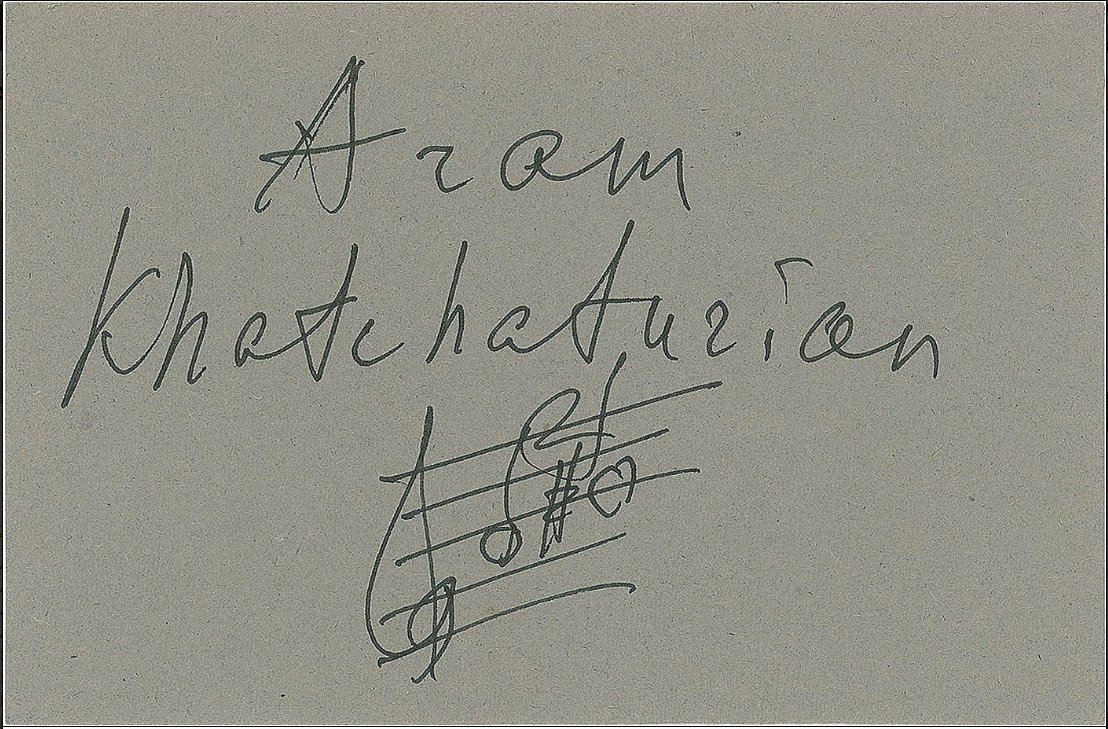 Aram
Khatchaturian